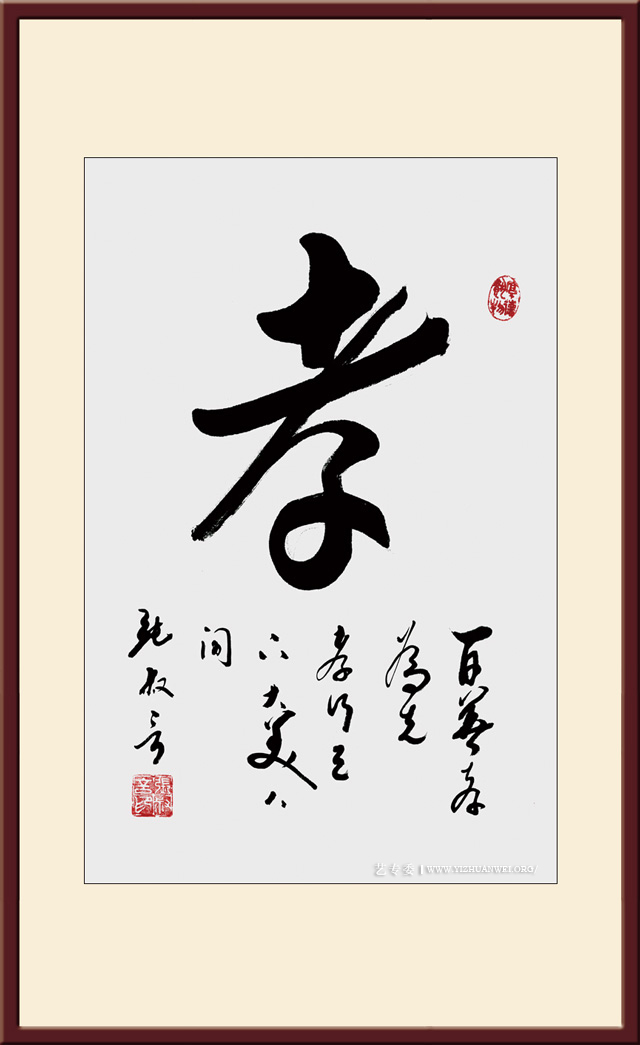 孝
百善孝
為先
孝行天
下 大美人
间
艺专委 | WWW.YIZHUANWEI.ORG/